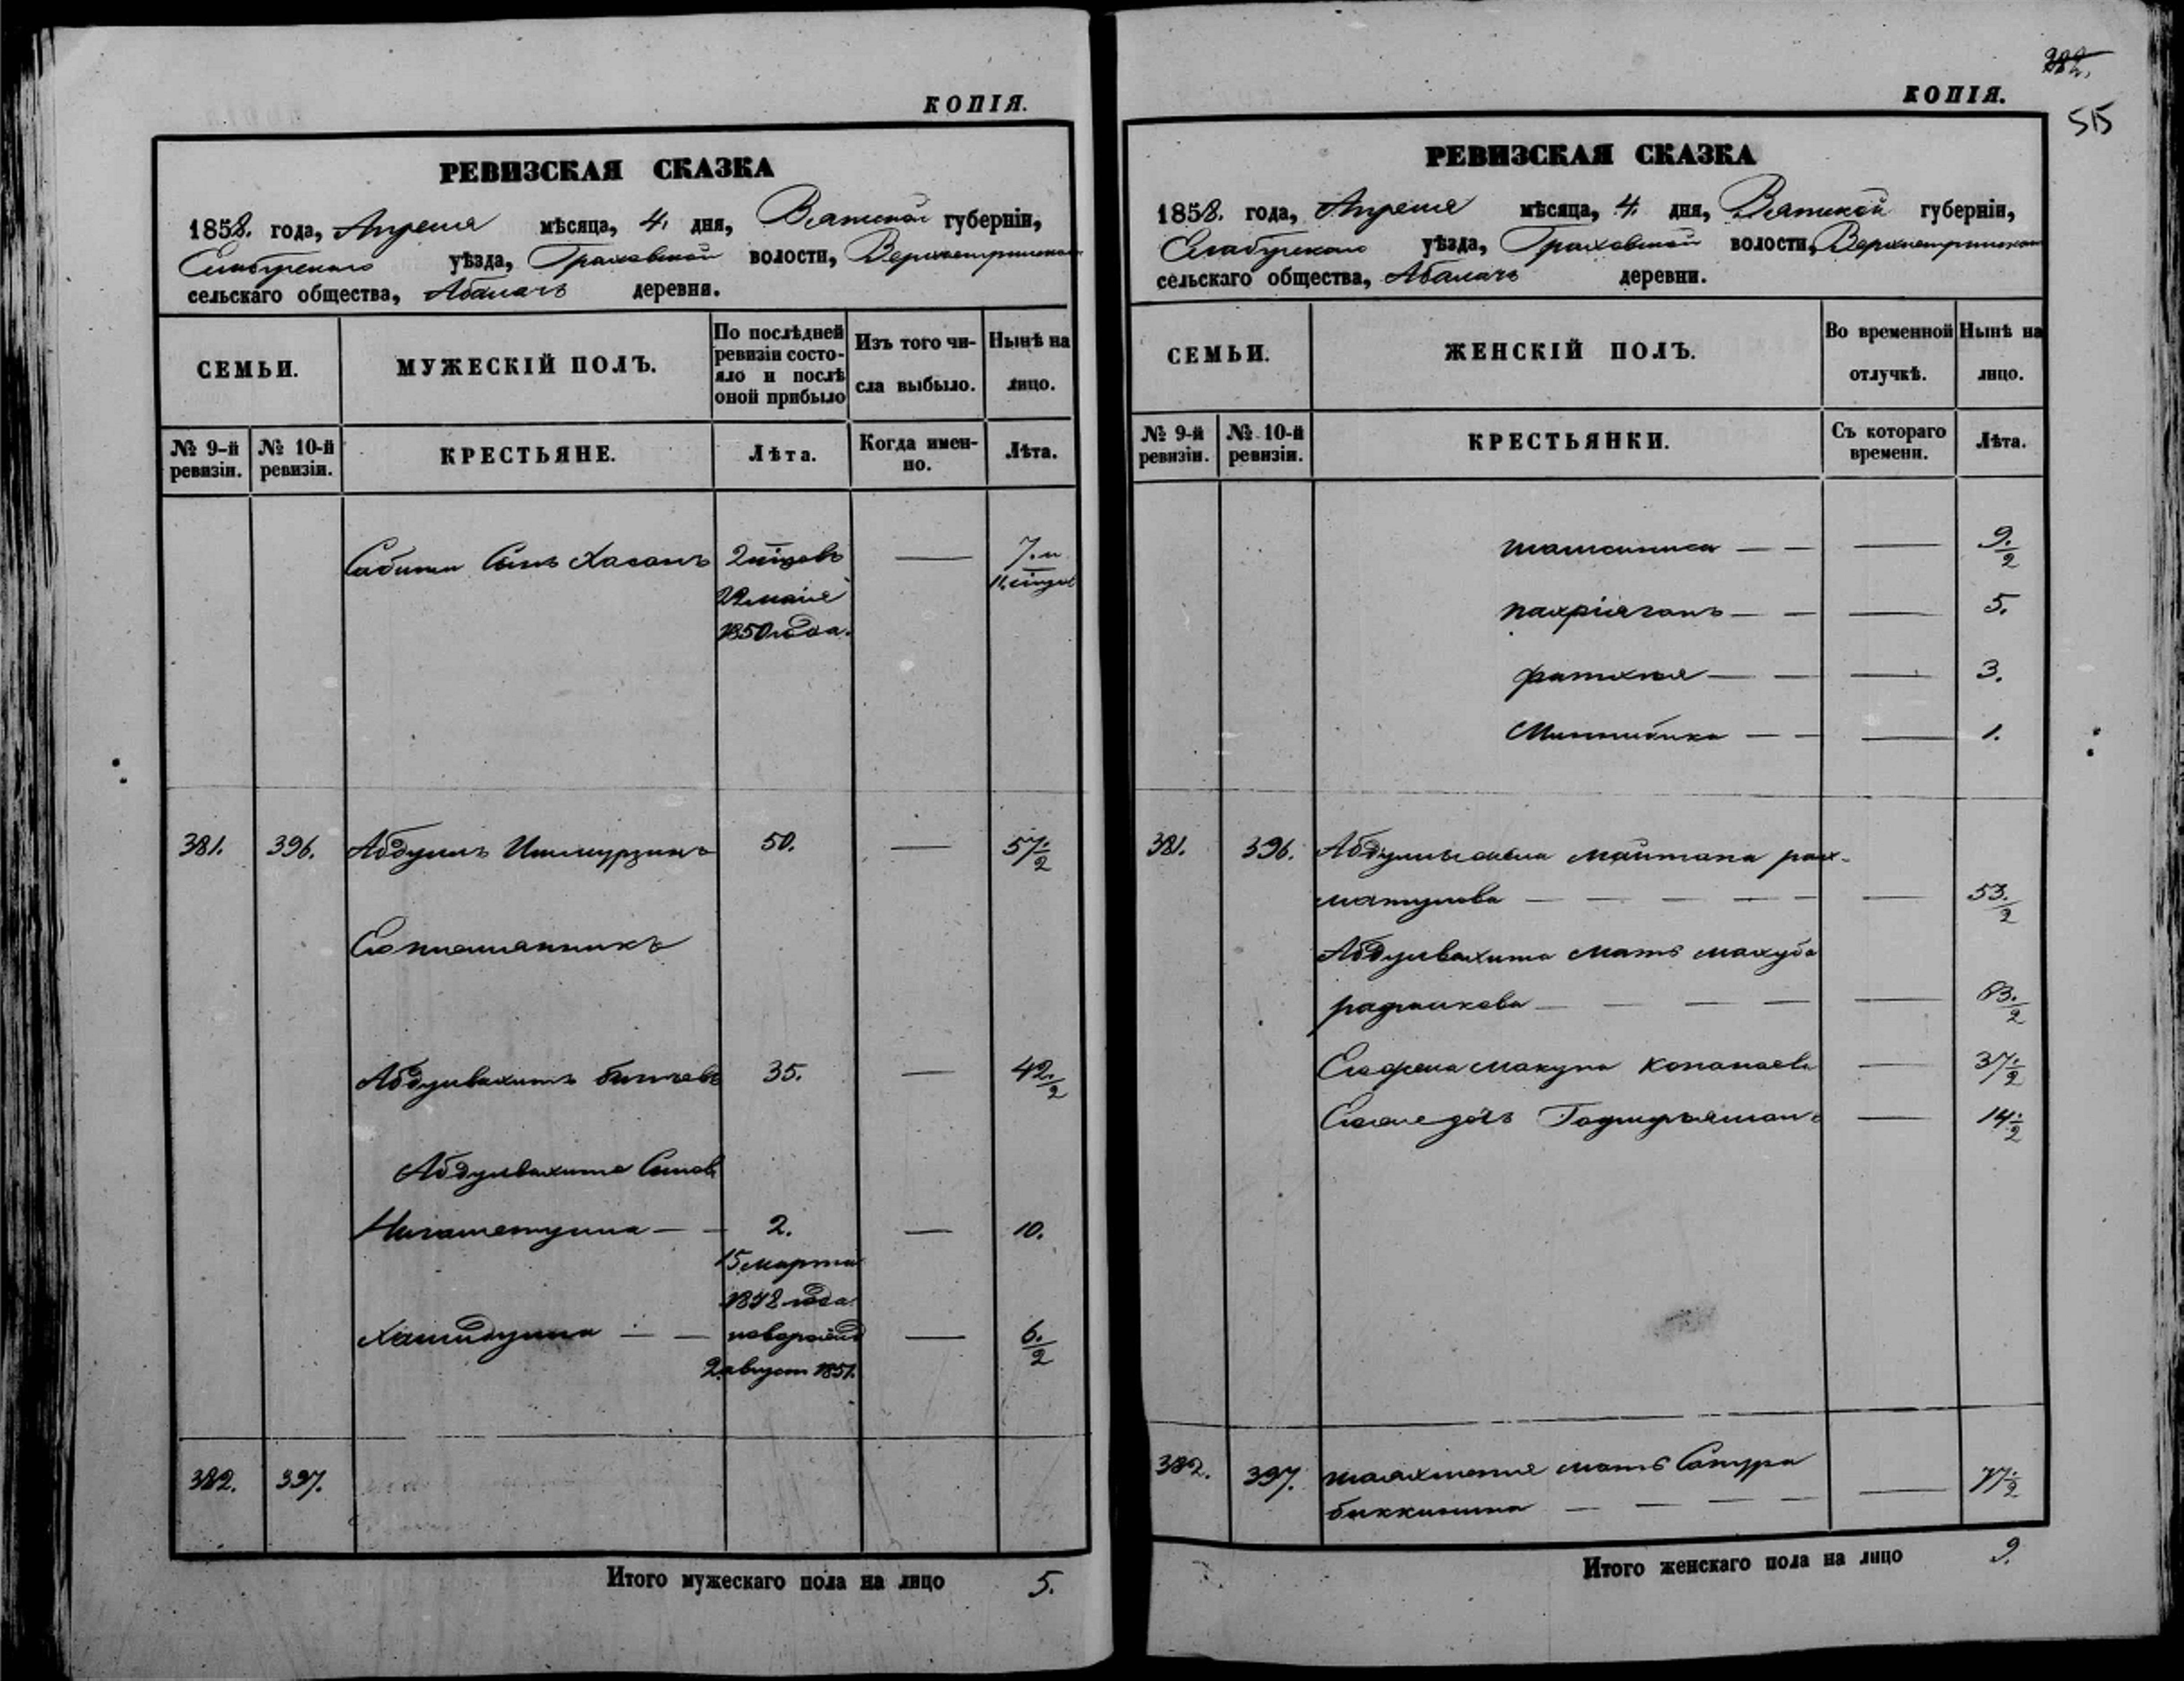 КОПІЯ.
РЕВИЗСКАЯ СКАЗКА
1858. года, Апреля мѣсяца, 4. дня, Вятской губерніи,
Елабугскаго уѣзда, Граховской волости,
сельскаго общества, Абалачъ деревни.
СЕМЬИ.
МУЖЕСКІЙ ПОЛЪ.
По послѣдней
ревизіи состо-
яло и послѣ
оной прибыло
Изъ того чи-
сла выбыло.
Нынѣ на
лицо.
№ 9-й
ревизіи.
№ 10-й
ревизіи.
КРЕСТЬЯНЕ.
Лѣта.
Когда имен-
но.
Лѣта.
Сынъ Хасанъ — 7. и
22 маія
1850 года.
381. 396. Абдулъ Ишмурзинъ 50. — 57.1/2
Его племянникъ
Абдулвахитъ 35. — 42.1/2
Абдулвахита Сынов
Нигаметулла — — 2. — 10.
15 марта
года.
Хамидулла — — новорожд — 6.1/2
2 август 1851.
382. 397.
Итого мужескаго пола на лицо 5.
382.
515
КОПІЯ.
РЕВИЗСКАЯ СКАЗКА
1858. года, Апреля мѣсяца, 4. дня, Вятской губерніи,
Елабугскаго уѣзда, Граховской волости,
сельскаго общества, Абалачъ деревни.
СЕМЬИ.
ЖЕНСКІЙ ПОЛЪ.
Во временной
отлучкѣ.
Нынѣ на
лицо.
№ 9-й
ревизіи.
№ 10-й
ревизіи.
КРЕСТЬЯНКИ.
Съ котораго
времени.
Лѣта.
— — — 9.1/2
— — — 5.
— — — 3.
Миннибика — — — 1.
381. 396. Абдулы жена рах-
матулова — — — — — — 53.1/2
Абдулвахита мать махуба
рафикова — — — — — 1/2
Его жена — 37.1/2
дочь — 14.1/2
382. 397. мать
биккинина — — — — — 77.1/2
Итого женскаго пола на лицо 9.